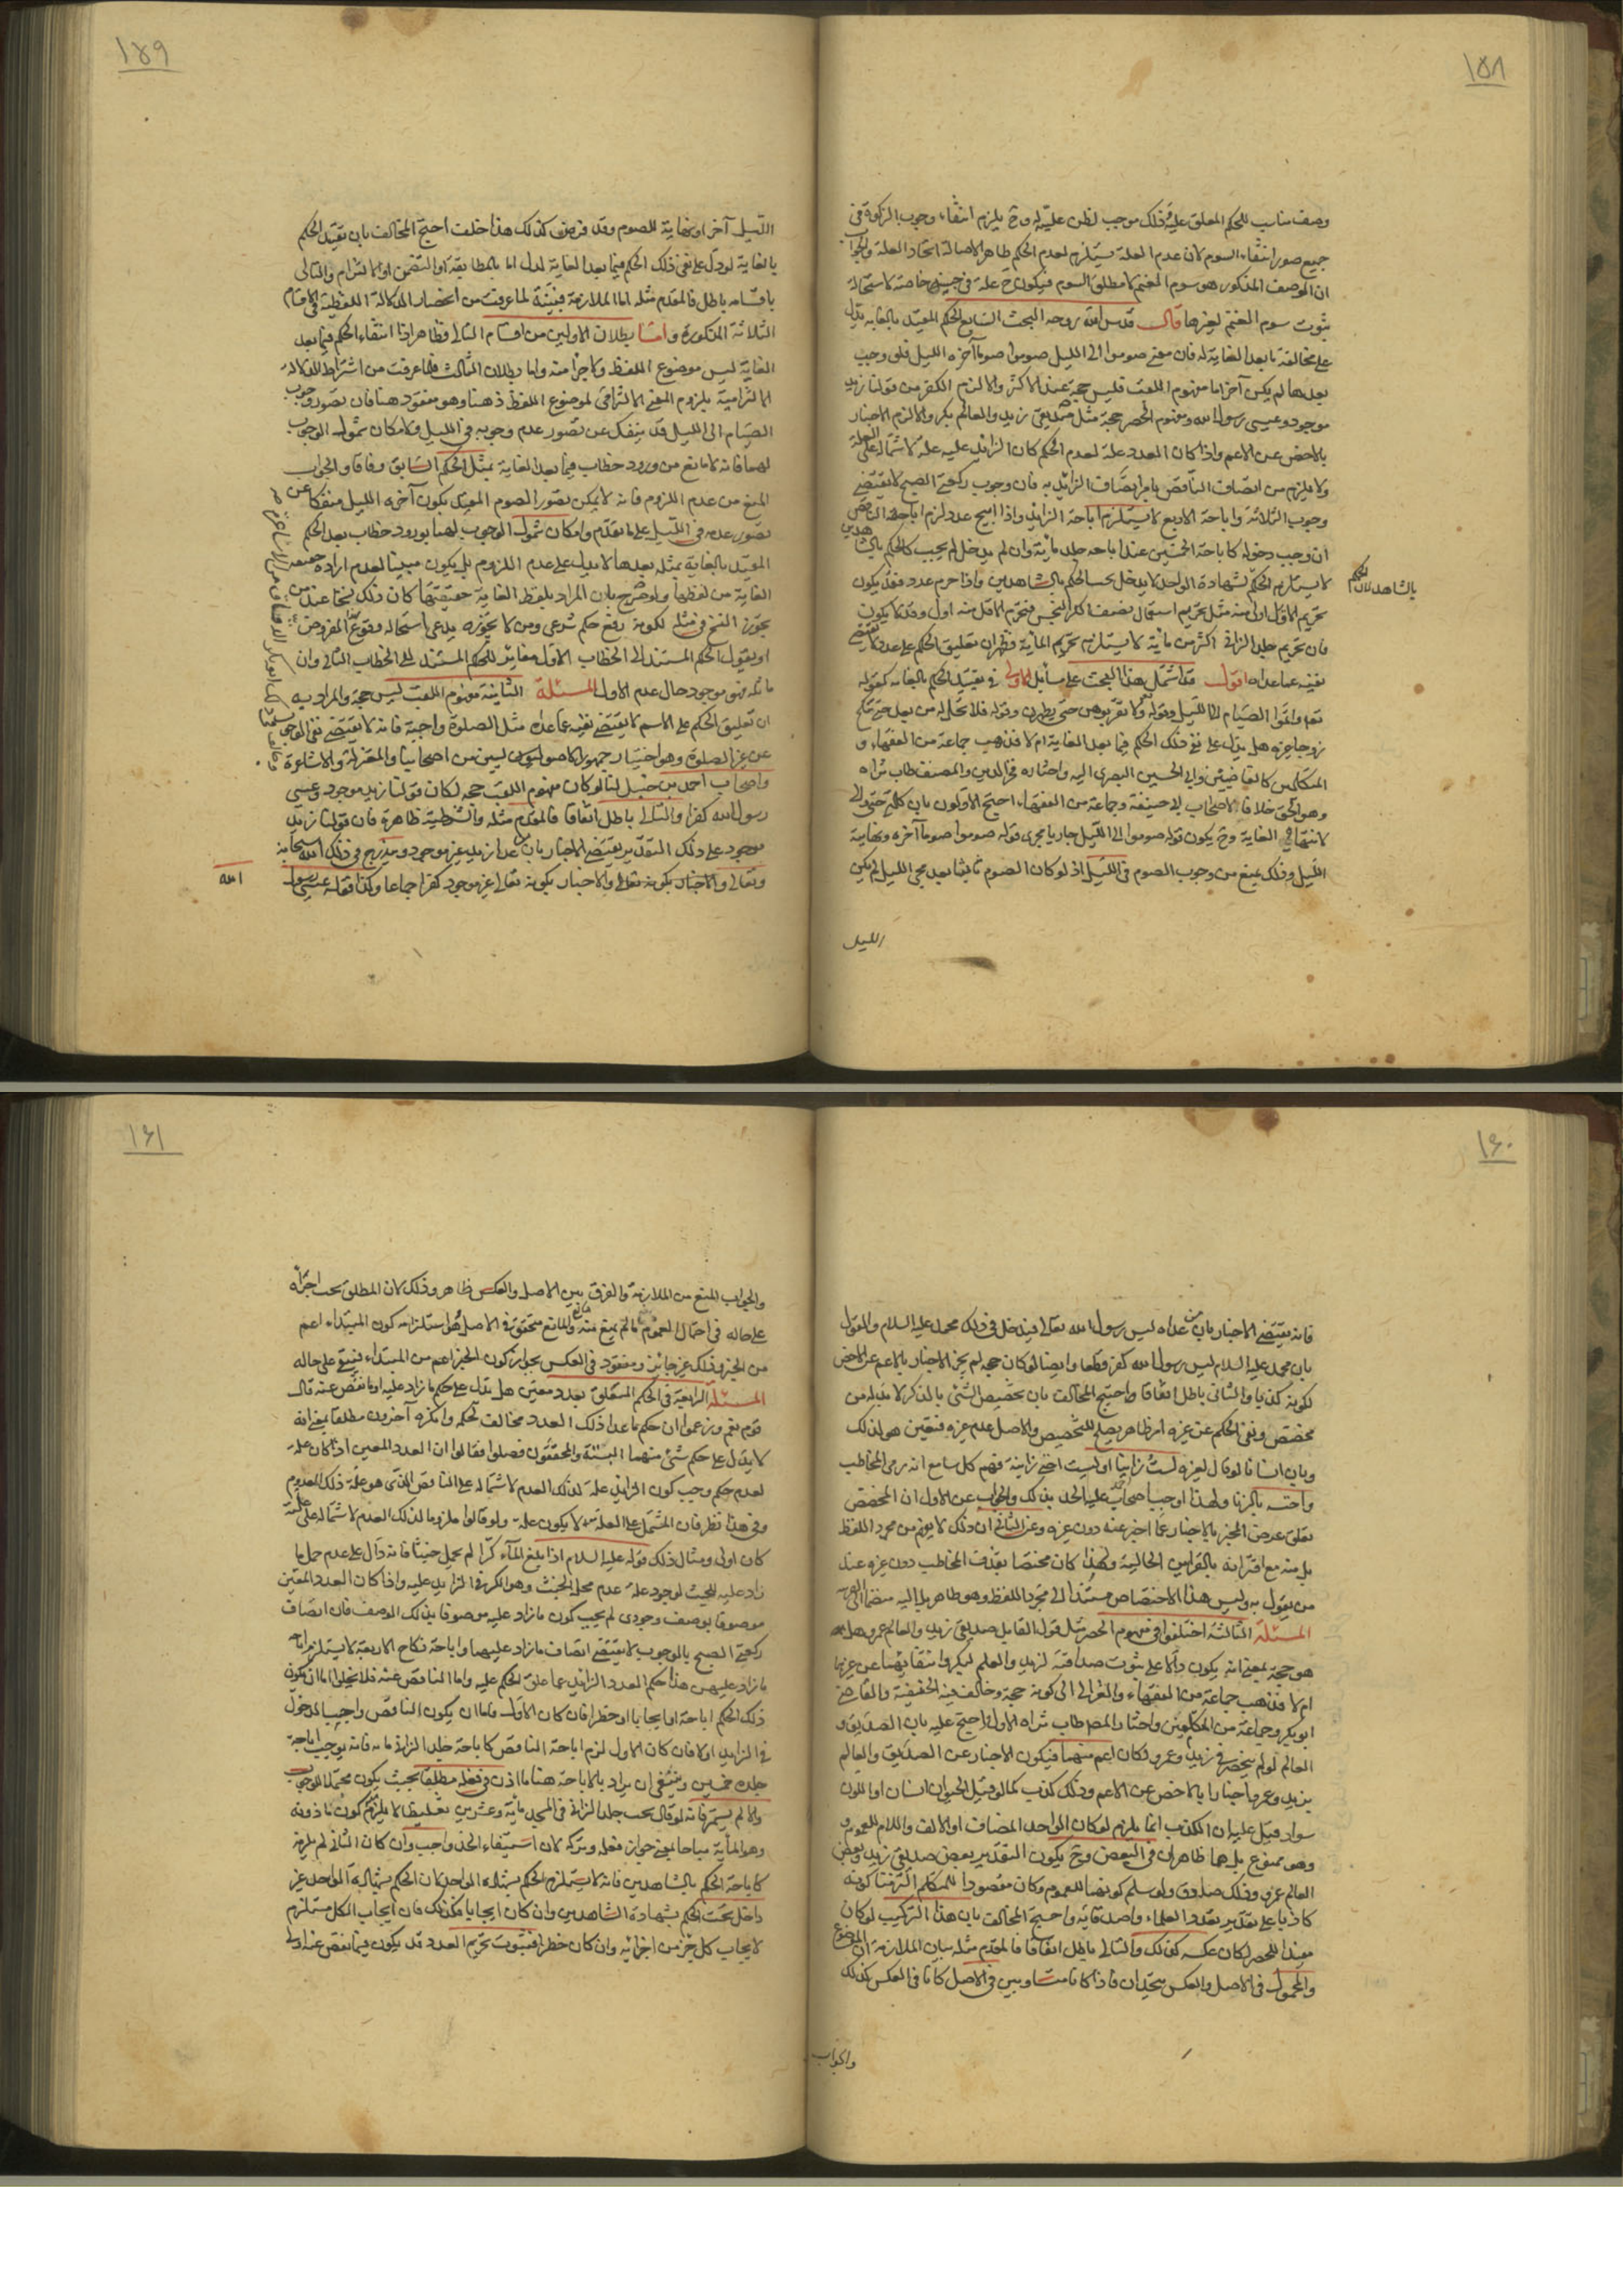 ١٥٨
وصف مناسب للحكم المعلق عليه وذلك موجب لظن عليته له وح يلزم انتفاء وجوب الزكوة في
جميع صور انتفاء السوم لان عدم العلة يستلزم لعدم الحكم ظاهرا لاصالة اتحاد العلة والجواب
ان الوصف المذكور هو سوم الغنم لا مطلق السوم فيكون ح علة في جنسه خاصة لاستحالة
ثبوت سوم الغنم لغيرها قال قدس الله روحه البحث السابع الحكم المقيد بالغاية يدل
على مخالفة ما بعد الغاية له فان معنى صوموا الى الليل صوموا صوما آخره الليل فلو وجب
بعدها لم يكن آخرا اما مفهوم اللقب فليس حجة عند الاكثر والا لزم الكفر من قولنا زيد
موجود وعيسى رسول الله ومفهوم الحصر حجة مثل صديقي زيد والعالم بكر والا لزم الاخبار
بالاخص عن الاعم واذا كان العدد علة لعدم الحكم كان الزائد عليه علة لاشتماله على العلة
ولا يلزم من اتصاف الناقص بامر اتصاف الزائد به فان وجوب ركعتي الصبح لا يقتضي
وجوب الثلاثة واباحة الاربع لا يستلزم اباحة الزايد واذا ابيح عدد لزم اباحة الناقص
ان وجب دخوله كاباحة الخمسين عند اباحة جلد مائة وان لم يدخل لم يجب كالحكم بالشاهدين
لا يستلزم الحكم لشهادة الواحد لا يدخل تحت الحكم بالشاهدين واذا حرم عدد فقد يكون
بالشاهد لان الحكم
تحريم الاقل اولى منه مثل تحريم استعمال نصف الكر النجس فتحرم الاقل منه اولى وقد لا يكون
فان تحريم جلد الزاني اكثر من مائة لا يستلزم تحريم المائة وظهر ان تعليق الحكم على عدد لا يقتضي
نفيه عما عداه اقول قد اشتمل هذا البحث على مسائل الاولى في تقييد الحكم بالغاية كقوله
تعالى واتموا الصيام الى الليل وقوله ولا تقربوهن حتى يطهرن وقوله فلا تحل له من بعد حتى تنكح
زوجا غيره هل يدل على نفي ذلك الحكم فيما بعد الغاية ام لا فذهب جماعة من الفقهاء و
المتكلمين كالقاضيين وابي الحسين البصري اليه واختاره فخر الدين والمصنف طاب ثراه
وهو الحق خلافا لاصحاب ابي حنيفة وجماعة من الفقهاء احتج الاولون بان كلمة حتى والى
لانتهاء الغاية وح يكون قوله صوموا الى الليل جاريا مجرى قوله صوموا صوما آخره ونهايته
الليل وذلك يمنع من وجوب الصوم في الليل اذ لو كان الصوم ثابتا بعد مجيء الليل لم يكن
الليل
١٥٩
الليل آخرا ونهاية للصوم وقد فرض كذلك هذا خلف احتج المخالف بان تقييد الحكم
بالغاية لو دل على نفي ذلك الحكم فيما بعد الغاية لدل اما بالمطابقة او التضمن او الالتزام والتالي
باقسامه باطل فالمقدم مثله اما الملازمة فبينة لما عرفت من انحصار الدلالة اللفظية في الاقسام
الثلاثة المذكورة واما بطلان الاولين من اقسام التالي فظاهر اذ انتفاء الحكم فيما بعد
الغاية ليس موضوع اللفظ ولا جزءا منه واما بطلان الثالث فلما عرفت من اشتراط الدلالة
الالتزامية بلزوم المعنى الالتزامي لموضوع اللفظ ذهنا وهو مفقود هنا فان تصور وجوب
الصيام الى الليل قد ينفك عن تصور عدم وجوبه في الليل ولامكان شمول الوجوب
لهما فانه لا مانع من ورود خطاب فيما بعد الغاية بمثل الحكم السابق وفاقا والجواب
المنع من عدم اللزوم فانه لا يمكن تصور الصوم المقيد بكون آخره الليل منفكا عن
تصور عدمه في الليل على ما تقدم وامكان شمول الوجوب لهما بورود خطاب بعد الحكم
المقيد بالغاية بمثله بعدها لا يدل على عدم اللزوم بل يكون مبينا لعدم ارادة حقيقة
الغاية من لفظها ولو صرح بان المراد بلفظ الغاية حقيقتها كان ذلك نسخا عند من
يجوز النسخ في مثله لكونه رفع حكم شرعي ومن لا يجوزه يدعي استحالة وقوع المفروض
او يقول الحكم المستند الى الخطاب الاول مغاير للحكم المستند الى الخطاب الثاني وان
ماثله فهو موجود حال عدم الاول المسئلة الثانية مفهوم اللقب ليس حجة والمراد به
ان تعليق الحكم على الاسم لا يقتضي نفيه عما عداه مثل الصلوة واجبة فانه لا يقتضي نفي الوجوب
عن غير الصلوة وهو اختيار جمهور الاصوليين من اصحابنا والمعتزلة والاشاعرة
واصحاب احمد بن حنبل لنا لو كان مفهوم اللقب حجة لكان قولنا زيد موجود وعيسى
رسول الله كفرا والتالي باطل اتفاقا فالمقدم مثله والشرطية ظاهرة فان قولنا زيد
موجود على ذلك التقدير يقتضي الاخبار بان من عدا زيد غير موجود ويندرج في ذلك الله سبحانه
وتعالى والاخبار بكونه تعالى غير موجود كفر اجماعا وكذا قوله عيسى رسول
الله
١٦٠
فانه يقتضي الاخبار بان من عداه ليس رسول الله تعالى فيدخل في ذلك محمد عليه السلام والقول
بان محمد عليه السلام ليس رسول الله كفر قطعا وايضا لو كان حجة لم يجز الاخبار بالاعم عن الاخص
لكونه كذبا والثاني باطل اتفاقا واحتج المخالف بان تخصيص الشئ بالذكر لا بد له من
مخصص ونفي الحكم عن غيره امر ظاهر يصلح للتخصيص والاصل عدم غيره فتعين هو لذلك
وبان انسانا لو قال لغيره لست زانيا او ليست اختي زانية فهم كل سامع انه رمى المخاطب
واخته بالزنا ولهذا اوجب اصحاب احمد عليه الحد بذلك والجواب عن الاول ان المخصص
تعلق غرض المخبر بالاخبار عما اخبر عنه دون غيره وعن الثاني ان ذلك لا يفهم من مجرد اللفظ
بل منه مع اقترانه بالقراين الحالية ولهذا كان مختصا بقذف المخاطب دون غيره عند
من يقول به وليس هذا الاختصاص مستندا الى مجرد اللفظ وهو ظاهر بل اليه منضما الى القرينة
المسئلة الثالثة اختلفوا في مفهوم الحصر مثل قول القايل صديقي زيد والعالم عمرو هل
هو حجة بمعنى انه يكون دالا على ثبوت صداقته لزيد والعلم لبكر وانتفائهما عن غيرهما
ام لا فذهب جماعة من الفقهاء والغزالي الى كونه حجة وخالف فيه الحنفية والقاضي
ابو بكر وجماعة من المتكلمين واختار المصنف طاب ثراه الاول واحتج عليه بان الصديق و
العالم لو لم ينحصر في زيد وعمرو لكان اعم منهما فيكون الاخبار عن الصديق والعالم
بزيد وعمرو اخبارا بالاخص عن الاعم وذلك كذب كما لو قيل الحيوان انسان او اللون
سواد قيل عليه ان الكذب انما يلزم لو كان الواحد المضاف او الالف واللام للعموم
وهو ممنوع بل هما ظاهران في البعض وح يكون التقدير بعض صديقي زيد وبعض
العالم عمرو وذلك صادق ولو سلم كونهما للعموم وكان مقصودا للمتكلم التزمنا كونه
كاذبا على تقدير تعدد العلماء واصدقائه واحتج المخالف بان هذا التركيب لو كان
مفيدا للحصر لكان عكسه كذلك والتالي باطل اتفاقا فالمقدم مثله بيان الملازمة ان الموضوع
والمحمول في الاصل والعكس متحدان فاذا كانا متساويين في الاصل كانا في العكس كذلك
والجواب
١٦١
والجواب المنع من الملازمة والفرق بين الاصل والعكس ظاهر وذلك لان المطلق يجب اجراؤه
على حاله في احتمال العموم ما لم يمنع منه مانع والمانع متحقق في الاصل وهو استلزامه كون المبتداء اعم
من الخبر وذلك غير جائز ومفقود في العكس لجواز كون الخبر اعم من المبتداء فيبقى على حاله
المسئلة الرابعة في الحكم المتعلق بعدد معين هل يدل على حكم ما زاد عليه او ما نقص عنه قال
قوم نعم وزعموا ان حكم ما عدا ذلك العدد مخالف لحكمه وانكره آخرون مطلقا بمعنى انه
لا يدل على حكم شئ منهما البتة والمحققون فصلوا فقالوا ان العدد المعين اذا كان علة
لعدم حكم وجب كون الزايد علة لذلك العدم لاشتماله على الناقص الذي هو علة ذلك العدم
وفي هذا نظر فان المشتمل على العلة قد لا يكون علة ولو قالوا ملزوما لذلك العدم لاشتماله على علته
كان اولى ومثال ذلك قوله عليه السلام اذا بلغ الماء كرا لم يحمل خبثا فانه دال على عدم حمل ما
زاد عليه للخبث لوجود علة عدم محل الخبث وهو الكر في الزايد عليه واذا كان العدد المعين
موصوفا بوصف وجودي لم يجب كون ما زاد عليه موصوفا بذلك الوصف فان اتصاف
ركعتي الصبح بالوجوب لا يقتضي اتصاف ما زاد عليهما واباحة نكاح الاربعة لا يستلزم اباحة
ما زاد عليهن هذا حكم العدد الزايد عما علق الحكم عليه واما الناقص عنه فلا يخلوا اما ان يكون
ذلك الحكم اباحة او ايجابا او حظرا فان كان الاول فاما ان يكون الناقص واجب الدخول
في الزايد او لا فان كان الاول لزم اباحة الناقص كاباحة جلد الزاني مائة فانه يوجب اباحة
جلده خمسين وينبغي ان يراد بالاباحة هنا ما اذن في فعله مطلقا بحيث يكون محتملا للوجوب
والا لم يستمر فانه لو قال يجب جلد الزاني في المسجد مائة وعشرين تغليظا لا يلزم كون ما دونه
وهو المأية مباحا بمعنى جواز فعله وتركه لان استيفاء الحد واجب وان كان الثاني لم يلزمه
كاباحة الحكم بالشاهدين فانه لا يستلزم الحكم بشهادة الواحد لان الحكم بشهادة الواحد غير
داخل تحت الحكم بشهادة الشاهدين وان كان ايجابا فكذلك فان ايجاب الكل مستلزم
لايجاب كل جزء من اجزائه وان كان حظرا فثبوت تحريم العدد قد يكون فيما نقص عنه اولى